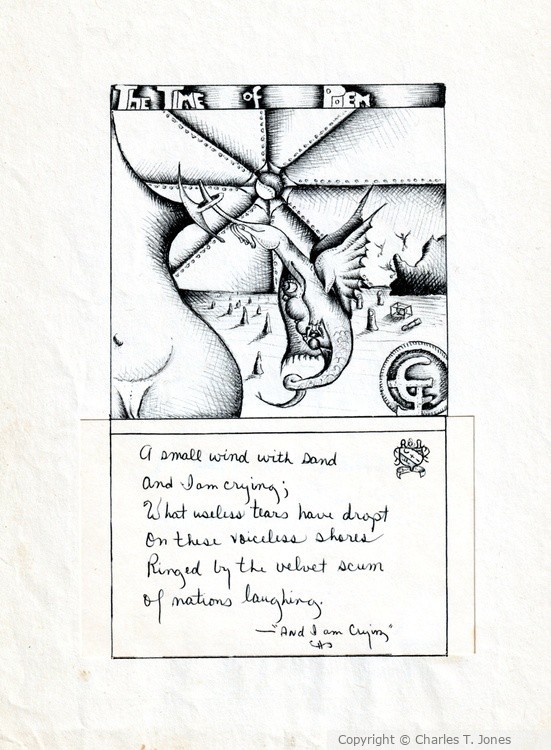 The Time of Poem
A small wind with sand
and I am crying;
What useless tears have dropt
On these voiceless shores
Ringed by the velvet scum
of nations laughing.
— "And I am Crying"
Copyright © Charles T. Jones